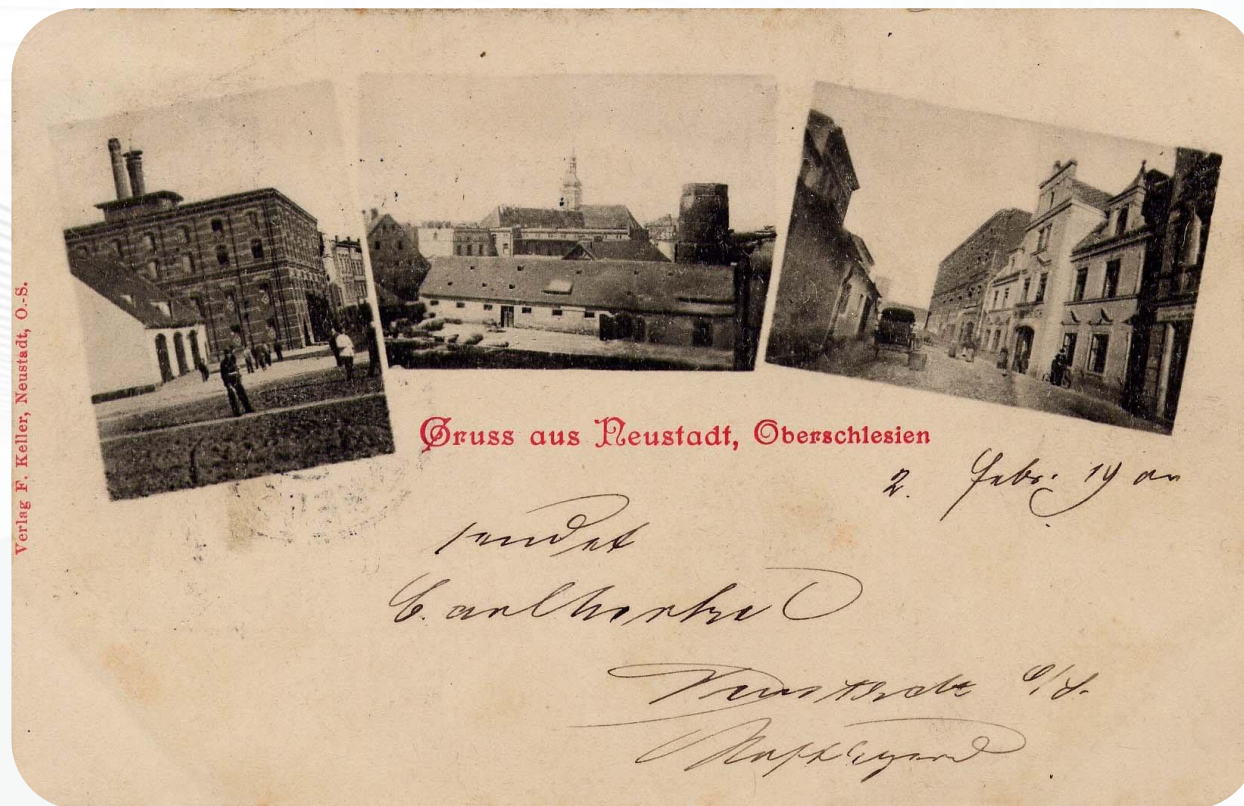 Verlag F. Keller, Neustadt, O.-S.
Gruss aus Neustadt, Oberschlesien
2. Febr. 19 00
sendet
Carl
Neustadt O/S.